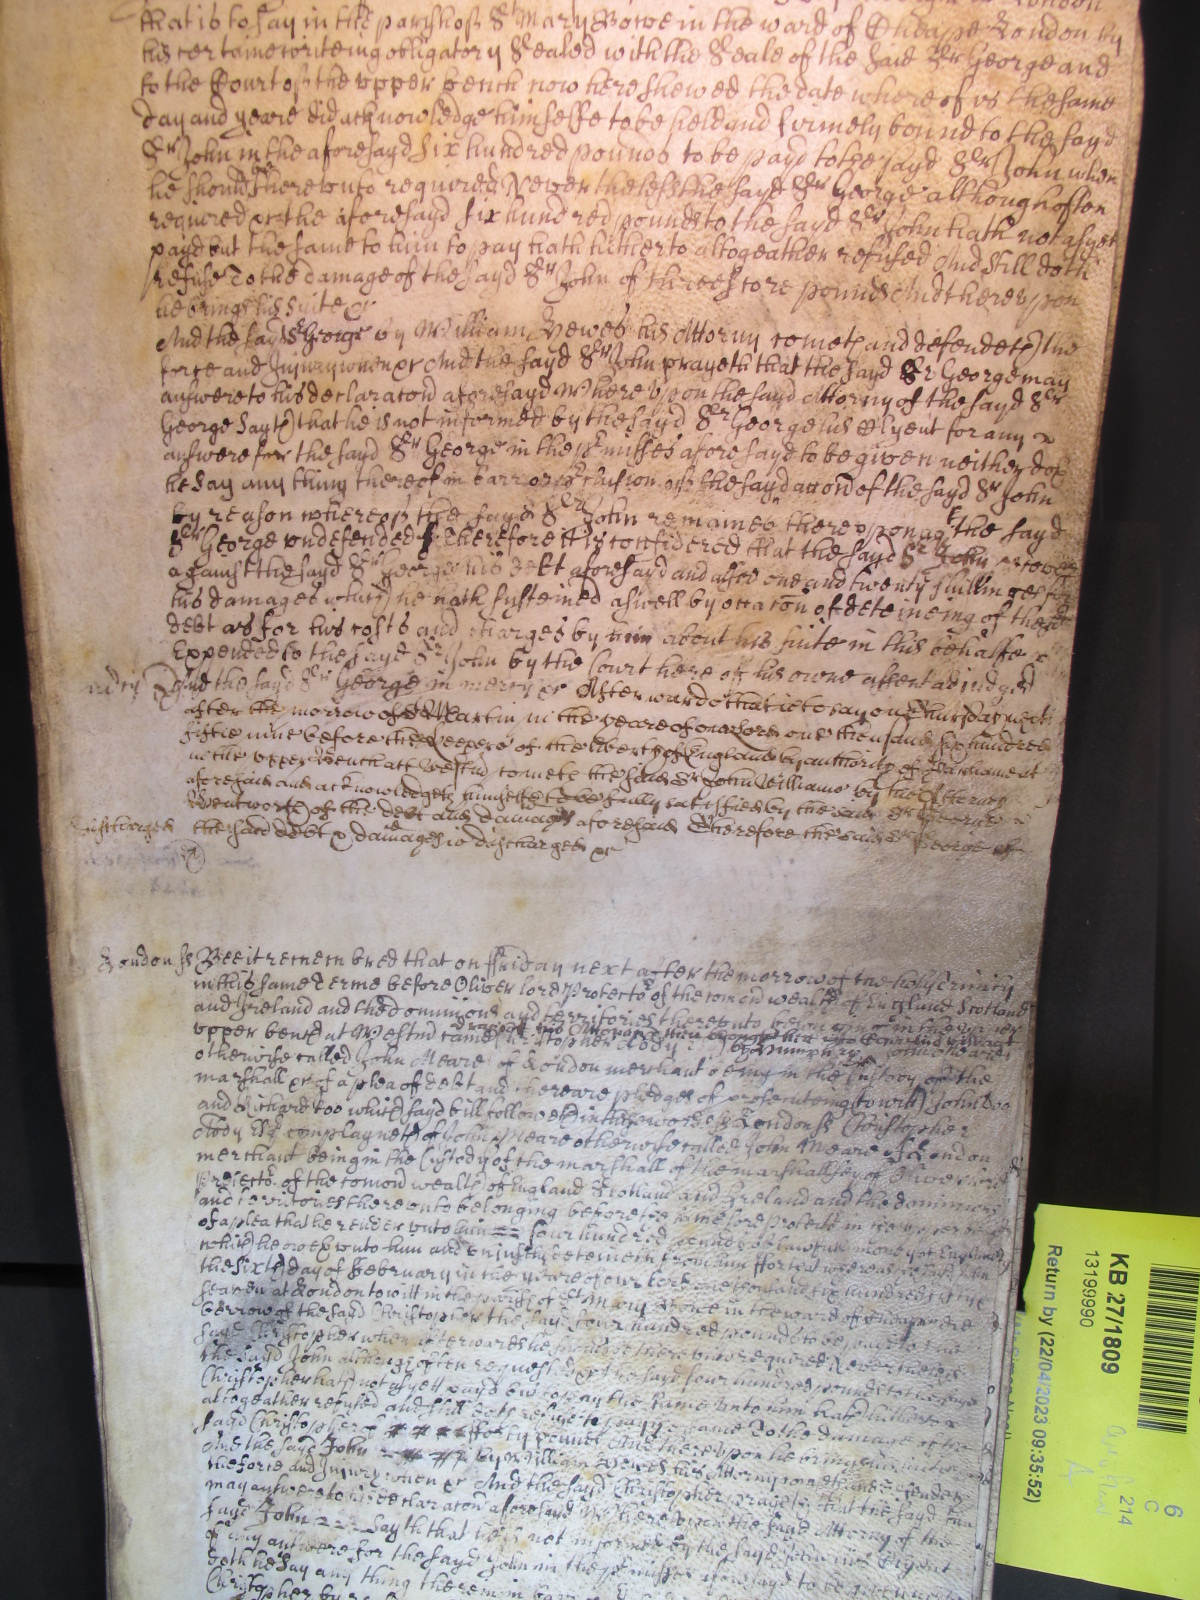 that is to say in the parish of St Mary Bowe in the ward of Cheape London by
his certaine writeing obligatory Sealed with the Seale of the said Sr George and
to the Court of the vpper bench now here shewed the date whereof is the same
day and yeare did acknowledge himselfe to be held and firmely bound to the sayd
Sr John in the aforesayd six hundred pounds to be payd to the sayd Sr John when
he should be therevnto required Neverthelesse the sayd Sr George although often
required &c the aforesayd six hundred pounds to the sayd Sr John hath not as yet
payd but the same to him to pay hath hitherto altogeather refused And still doth
refuse To the damage of the sayd Sr John of threescore pounds And therevpon
he brings his suite &c
And the sayd Sr George by William Yewes his Attorny cometh and defendeth the
force and Injury when &c And the sayd Sr John prayeth that the sayd Sr George may
answere to his declaracon aforesayd Wherevpon the sayd Attorny of the sayd Sr
George Sayth that he is not informed by the sayd Sr George his Clyent for any
answere for the sayd Sr George in the premisses aforesayd to be given neither doth
he Say any thing thereof in barr or preclusion of the sayd accon of the sayd Sr John
by reason whereof the sayd Sr John remaines therevpon agt the sayd
Sr George vndefended Therefore it is considered that the sayd Sr John recover
against the sayd Sr George his debt aforesayd and alsoe one and twenty shillinges for
his damages which he hath susteined aswell by occacon of deteineing of the sd
debt as for his costs and charges by him about his suite in this behalfe
Expended to the sayd Sr John by the Court here of his owne assent adiudged
And the sayd Sr George in mercy &c Afterwards that is to say on Thursday next
after the morrow of St Martin in the yeare of our lord one thousand six hundred
fiftie nine before the Keepers of the liberty of England by authority of Parliament
in the vpper Bench att Westmr cometh the said Sr John Williams by his Attorney
aforesaid and acknowledgeth himselfe to be fully satisfied by the said Sr George
Wentworth of the debt and damages aforesaid Therefore the said Sr George of
discharged the said debt & damages is discharged &c
London ss Bee it remembred that on ffriday next after the morrow of the holy Trinity
in this same Terme before Oliver lord Protector of the comon wealth of England Scotland
and Ireland and the dominions and territories therevnto belonging in the vpper
vpper bench at Westmr came Christopher Clody
otherwise called John Meare of London merchant being in the Custody of the
marshall &c of a plea of debt and there are pledges of prosecuteing (to witt) John Doe
and Richard Roo which sayd bill followeth in these words ss London ss Christopher
Clody Esqr complayneth of John Meare otherwise called John Meare of London
merchant being in the Custody of the marshall of the marshallsey of Oliver lord
Protector of the comon wealth of England Scotland and Ireland and the dominions
and territories therevnto belonging before the same lord protector in the vpper bench
of a plea that he render vnto him four hundred pounds of lawfull money of England
which he oweth vnto him and vniustly deteineth from him ffor that whereas
the sixth day of February in the yeare of our lord one thousand six hundred fiftie
seaven at London to witt in the parish of St Mary Bowe in the ward of Cheape
borrow of the sayd Christopher the sayd four hundred pounds to be payd to the
sayd Christopher when afterwards he should be therevnto required Neverthelesse
the sayd John although often requested &c the sayd four hundred pounds to the sayd
Christopher hath not as yett payd but to pay the same vnto him hath hitherto
altogeather refused and still doth refuse to pay the same To the damage of the
sayd Christopher of forty pounds And therevpon he brings his suite
And the sayd John by William Yewes his Attorny cometh and defendeth
the force and Injury when &c And the sayd Christopher prayeth that the sayd John
may answere to his declaracon aforesayd Wherevpon the sayd Attorny of the
sayd John Sayth that he is not informed by the sayd John his Clyent
of any answere for the sayd John in the premisses aforesayd to be given
doth he Say any thing thereof in barr
Christopher by
KB 27/1809
13199990
Return by (22/04/2023 09:35:52)
6
C
214